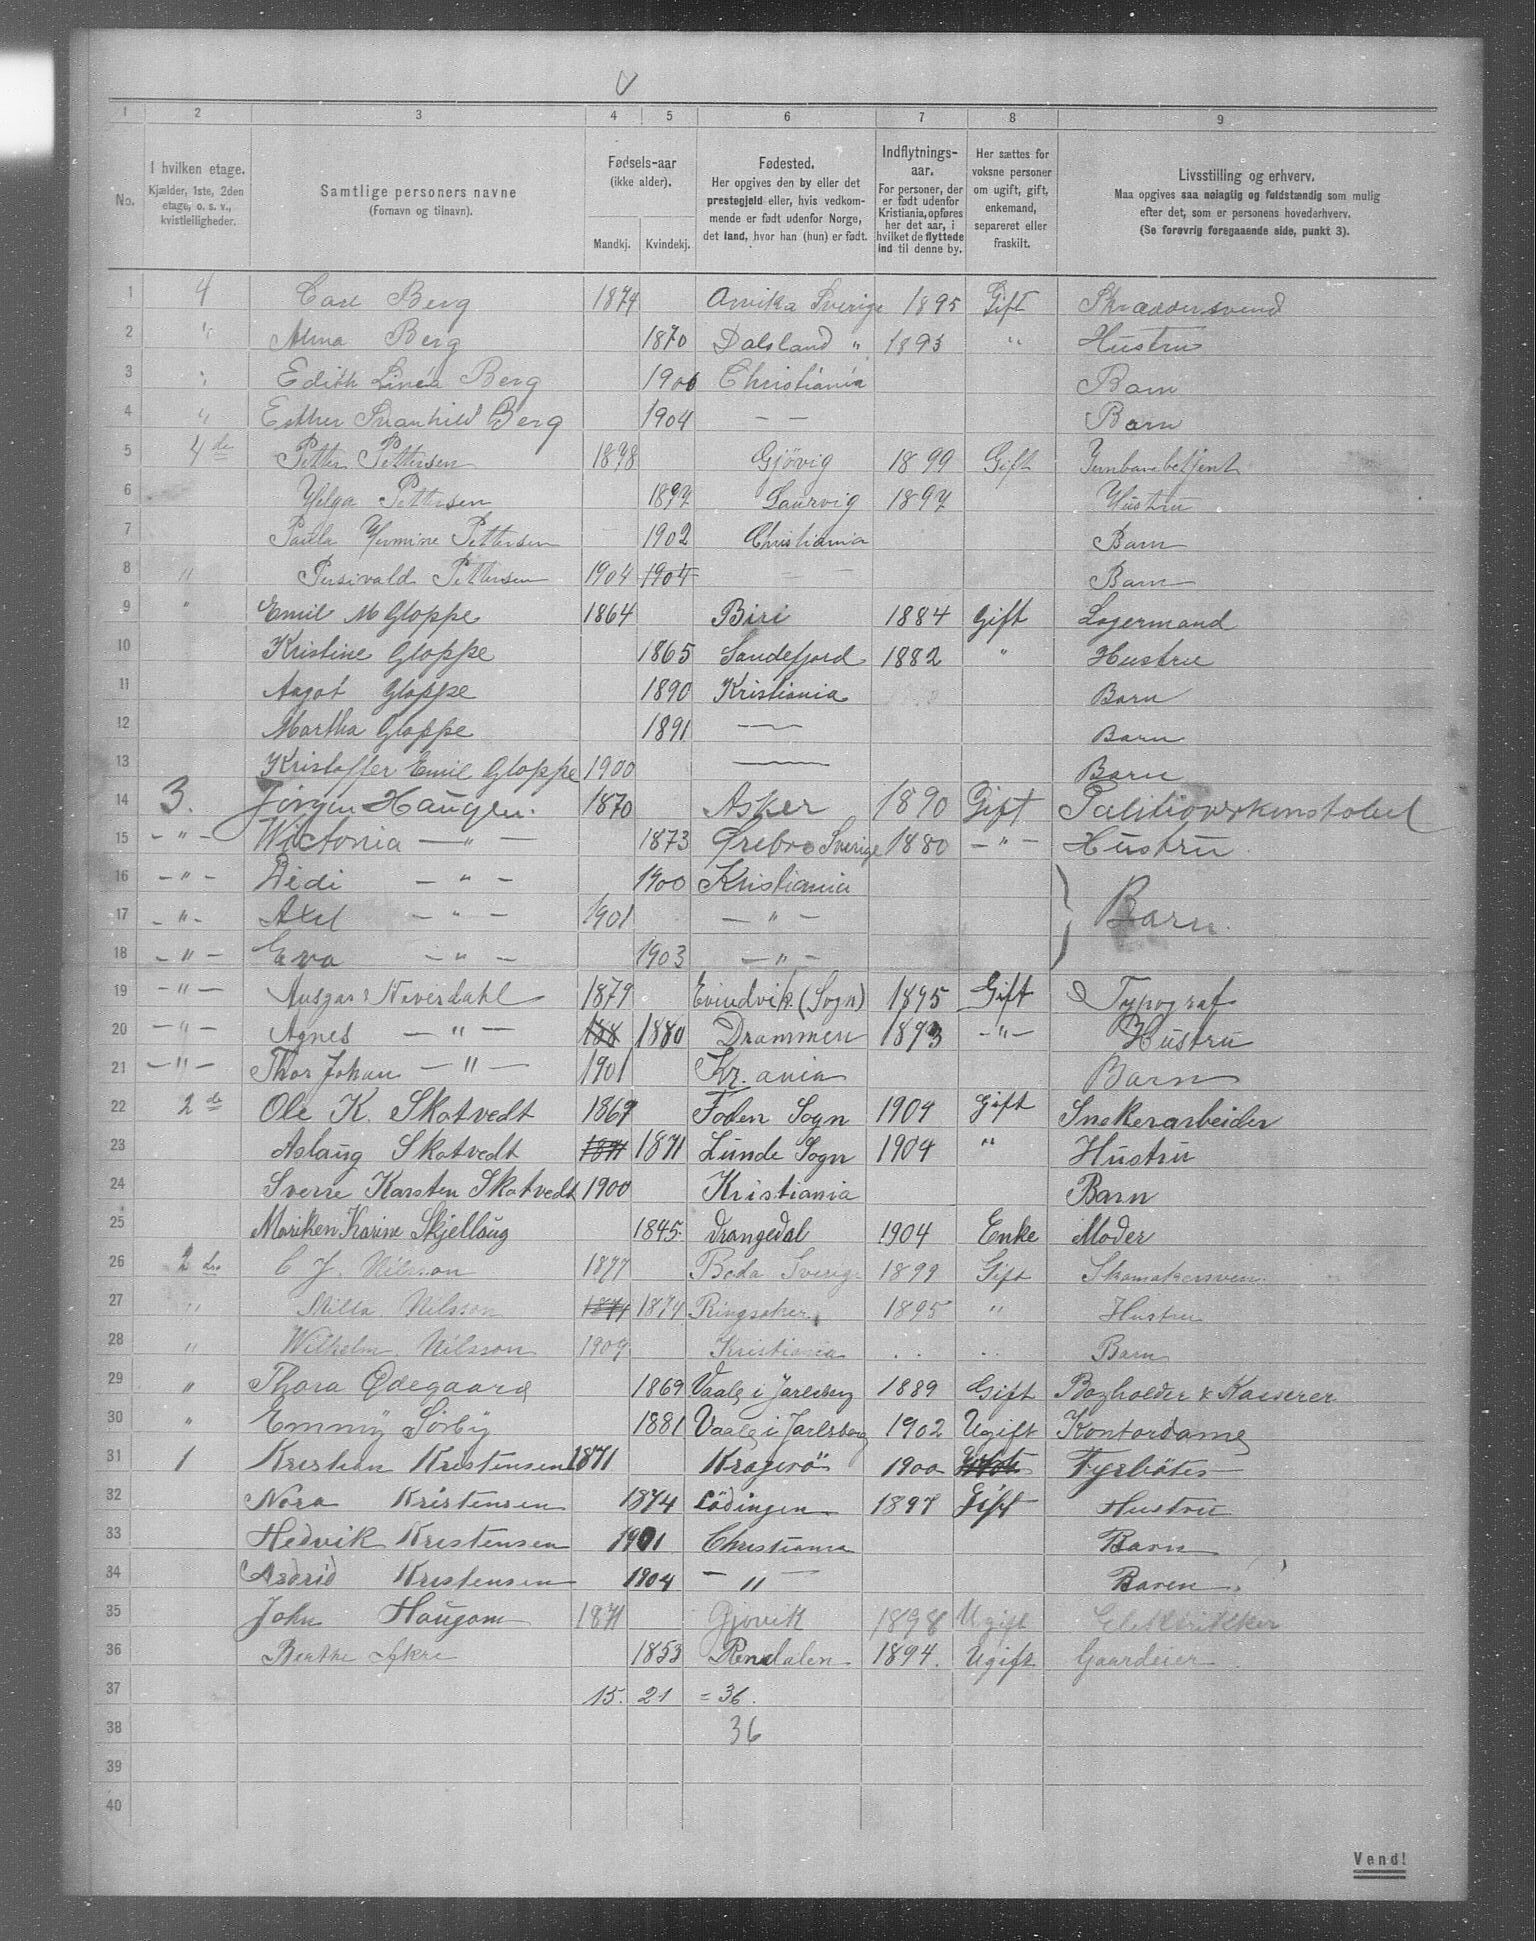 V
1 2 3 4 5 6 7 8 9
No.
I hvilken etage.
Kjælder, 1ste, 2den
etage, o. s. v.,
kvistleiligheder.
Samtlige personers navne
(Fornavn og tilnavn).
Fødsels-aar
(ikke alder).
Mandkj. Kvindekj.
Fødested.
Her opgives den by eller det
prestegjeld eller, hvis vedkom-
mende er født udenfor Norge,
det land, hvor han (hun) er født.
Indflytnings-
aar.
For personer, der
er født udenfor
Kristiania, opføres
her det aar, i
hvilket de flyttede
ind til denne by.
Her sættes for
voksne personer
om ugift, gift,
enkemand,
separeret eller
fraskilt.
Livsstilling og erhverv.
Maa opgives saa nøiagtig og fuldstændig som mulig
efter det, som er personens hovederhverv.
(Se forøvrig foregaaende side, punkt 3).
1 4 Carl Berg 1874 Arvika Sverige 1895 Gift Skræddersvend
2 " Alma Berg 1870 Dalsland " 1895 " Hustru
3 " Edith Linéa Berg 1900 Christiania Barn
4 " Esther Svanhild Berg 1904 — — Barn
5 4de Petter Pettersen 1878 Gjövig 1899 Gift Jernbanebetjent
6 Helga Pettersen 1877 Laurvig 1897 Hustru
7 Paula Hermine Pettersen 1902 Christiania Barn
8 " Persivald Pettersen 1904 1904 — — Barn
9 " Emil M Gloppe 1864 Biri 1884 Gift Lagermand
10 Kristine Gloppe 1865 Sandefjord 1882 " Hustru
11 Aagot Gloppe 1890 Kristiania Barn
12 Martha Gloppe 1891 — Barn
13 Kristoffer Emil Gloppe 1900 — Barn
14 3. Jörgen Haugen. 1870 Asker 1890 Gift
15 — " — Victoria — " — 1873 Ørebro Sverige 1880 — " — Hustru
16 — " — Didi — " — 1900 Kristiania
17 — " — Axel — " — 1901 — " — } Barn.
18 — " — Eva — " — 1903 — " —
19 — " — Ansgar Neverdahl 1879 Evindvik (Sogn) 1895 Gift Typograf
20 — " — Agnes — " — 188 1880 Drammen 1893 — " — Hustru
21 — " — Thor Johan — " — 1901 Kr.ania Barn
22 2de Ole K. Skotvedt 1869 Foden Sogn 1904 Gift Snekerarbeider
23 Aslaug Skotvedt 1871 1871 Lunde Sogn 1904 " Hustru
24 Sverre Karsten Skotvedt 1900 Kristiania Barn
25 Mariken Karine Skjellaug 1845. Drangedal 1904 Enke Moder
26 2den C J. Nilsson 1877 Boda Sverige 1899 Gift Skomakersven
27 " Milla Nilsson 1874 1874 Ringsaker 1895 " Hustru
28 " Wilhelm Nilsson 1904 Kristiania Barn
29 " Thora Ødegaard 1869 Vaale i Jarlsberg 1889 Gift Bogholder & Kasserer
30 " Emmy Sörby 1881 Vaale i Jarlsberg 1902 Ugift Kontordame
31 1 Kristian Kristensen 1871 Kragerö 1900 Fyrböter
32 Nora Kristensen 1874 Lödingen 1897 Gift Hustru
33 Hedvik Kristensen 1901 Christiania Barn
34 Asdrid Kristensen 1904 — " — Baren
35 John Haugom 1871 Gjövik 1898 Ugift Elektrikker
36 Berthe 1853 Rendalen 1894. Ugift Gaardeier
37 15. 21 = 36.
38 36
39
40
Vend!